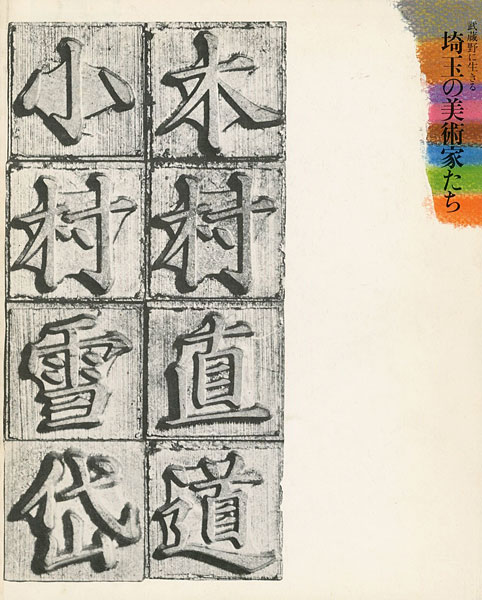 武蔵野に生きる
埼玉の美術家たち
木村直道
小村雪岱